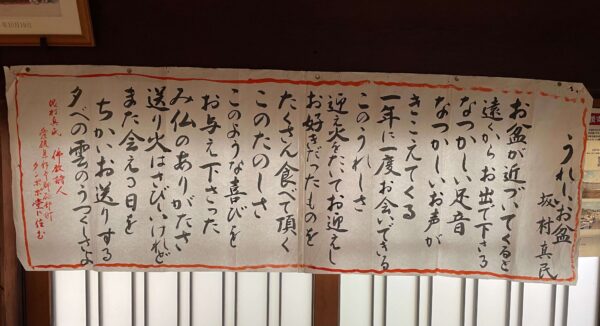 うれしいお盆
坂村真民
お盆が近づいてくると
遠くからお出で下さる
なつかしい足音
なつかしいお声が
きこえてくる
一年に一度お会いできる
このうれしさ
迎え火をたいてお迎えし
お好きだったものを
たくさん食べて頂く
このたのしさ
このような喜びを
お与え下さった
み仏のありがたさ
送り火はさびしいけれど
また会える日を
ちかいお送りする
夕べの雲のうつくしさよ
坂村真民 佛教詩人
愛媛県伊予郡砥部町
タンポポ堂に住む